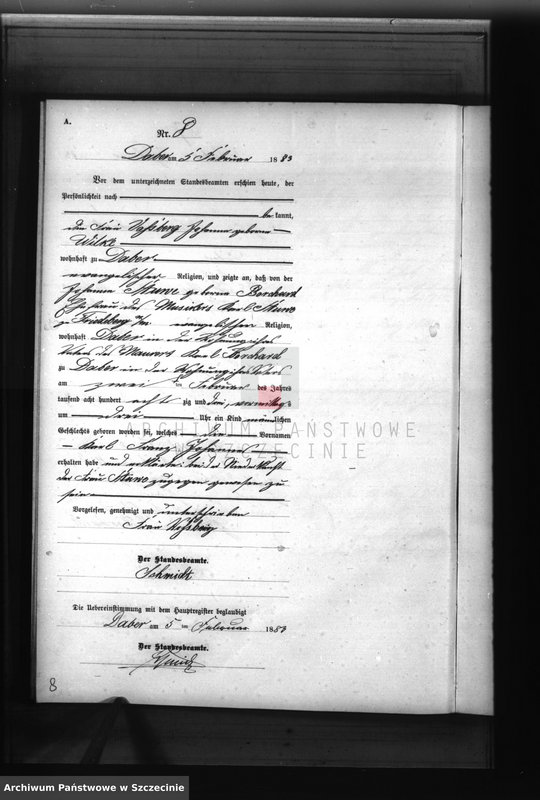 A.
Nr. 8
Daber am 5 Februar 1883
Vor dem unterzeichneten Standesbeamten erschien heute, der
Persönlichkeit nach
be kannt,
die Frau Johanna geborne
Wilke
wohnhaft zu Daber
evangelischer Religion, und zeigte an, daß von der
Johanna Stuwe geborne Borchard
Ehefrau des Musikers Karl Stuwe
zu Friedeberg evangelischer Religion,
wohnhaft Daber in der Wohnung ihres
Vaters des Maurers Karl Borchard
zu Daber in der Wohnung ihres Vaters
am zwei ten Februar des Jahres
tausend acht hundert acht zig und drei, vormittags
um drei Uhr ein Kind männlichen
Geschlechts geboren worden sei, welches den Vornamen
Karl Franz Johannes
erhalten habe und erklärte bei der Niederkunft
der Frau Stuwe zugegen gewesen zu
sein
Vorgelesen, genehmigt und unterschrieben
Frau
Der Standesbeamte.
Schmidt
Die Uebereinstimmung mit dem Hauptregister beglaubigt
Daber am 5 ten Februar 1883
Der Standesbeamte.
Schmidt
8
ARCHIWUM PAŃSTWOWE
W SZCZECINIE
Archiwum Państwowe w Szczecinie